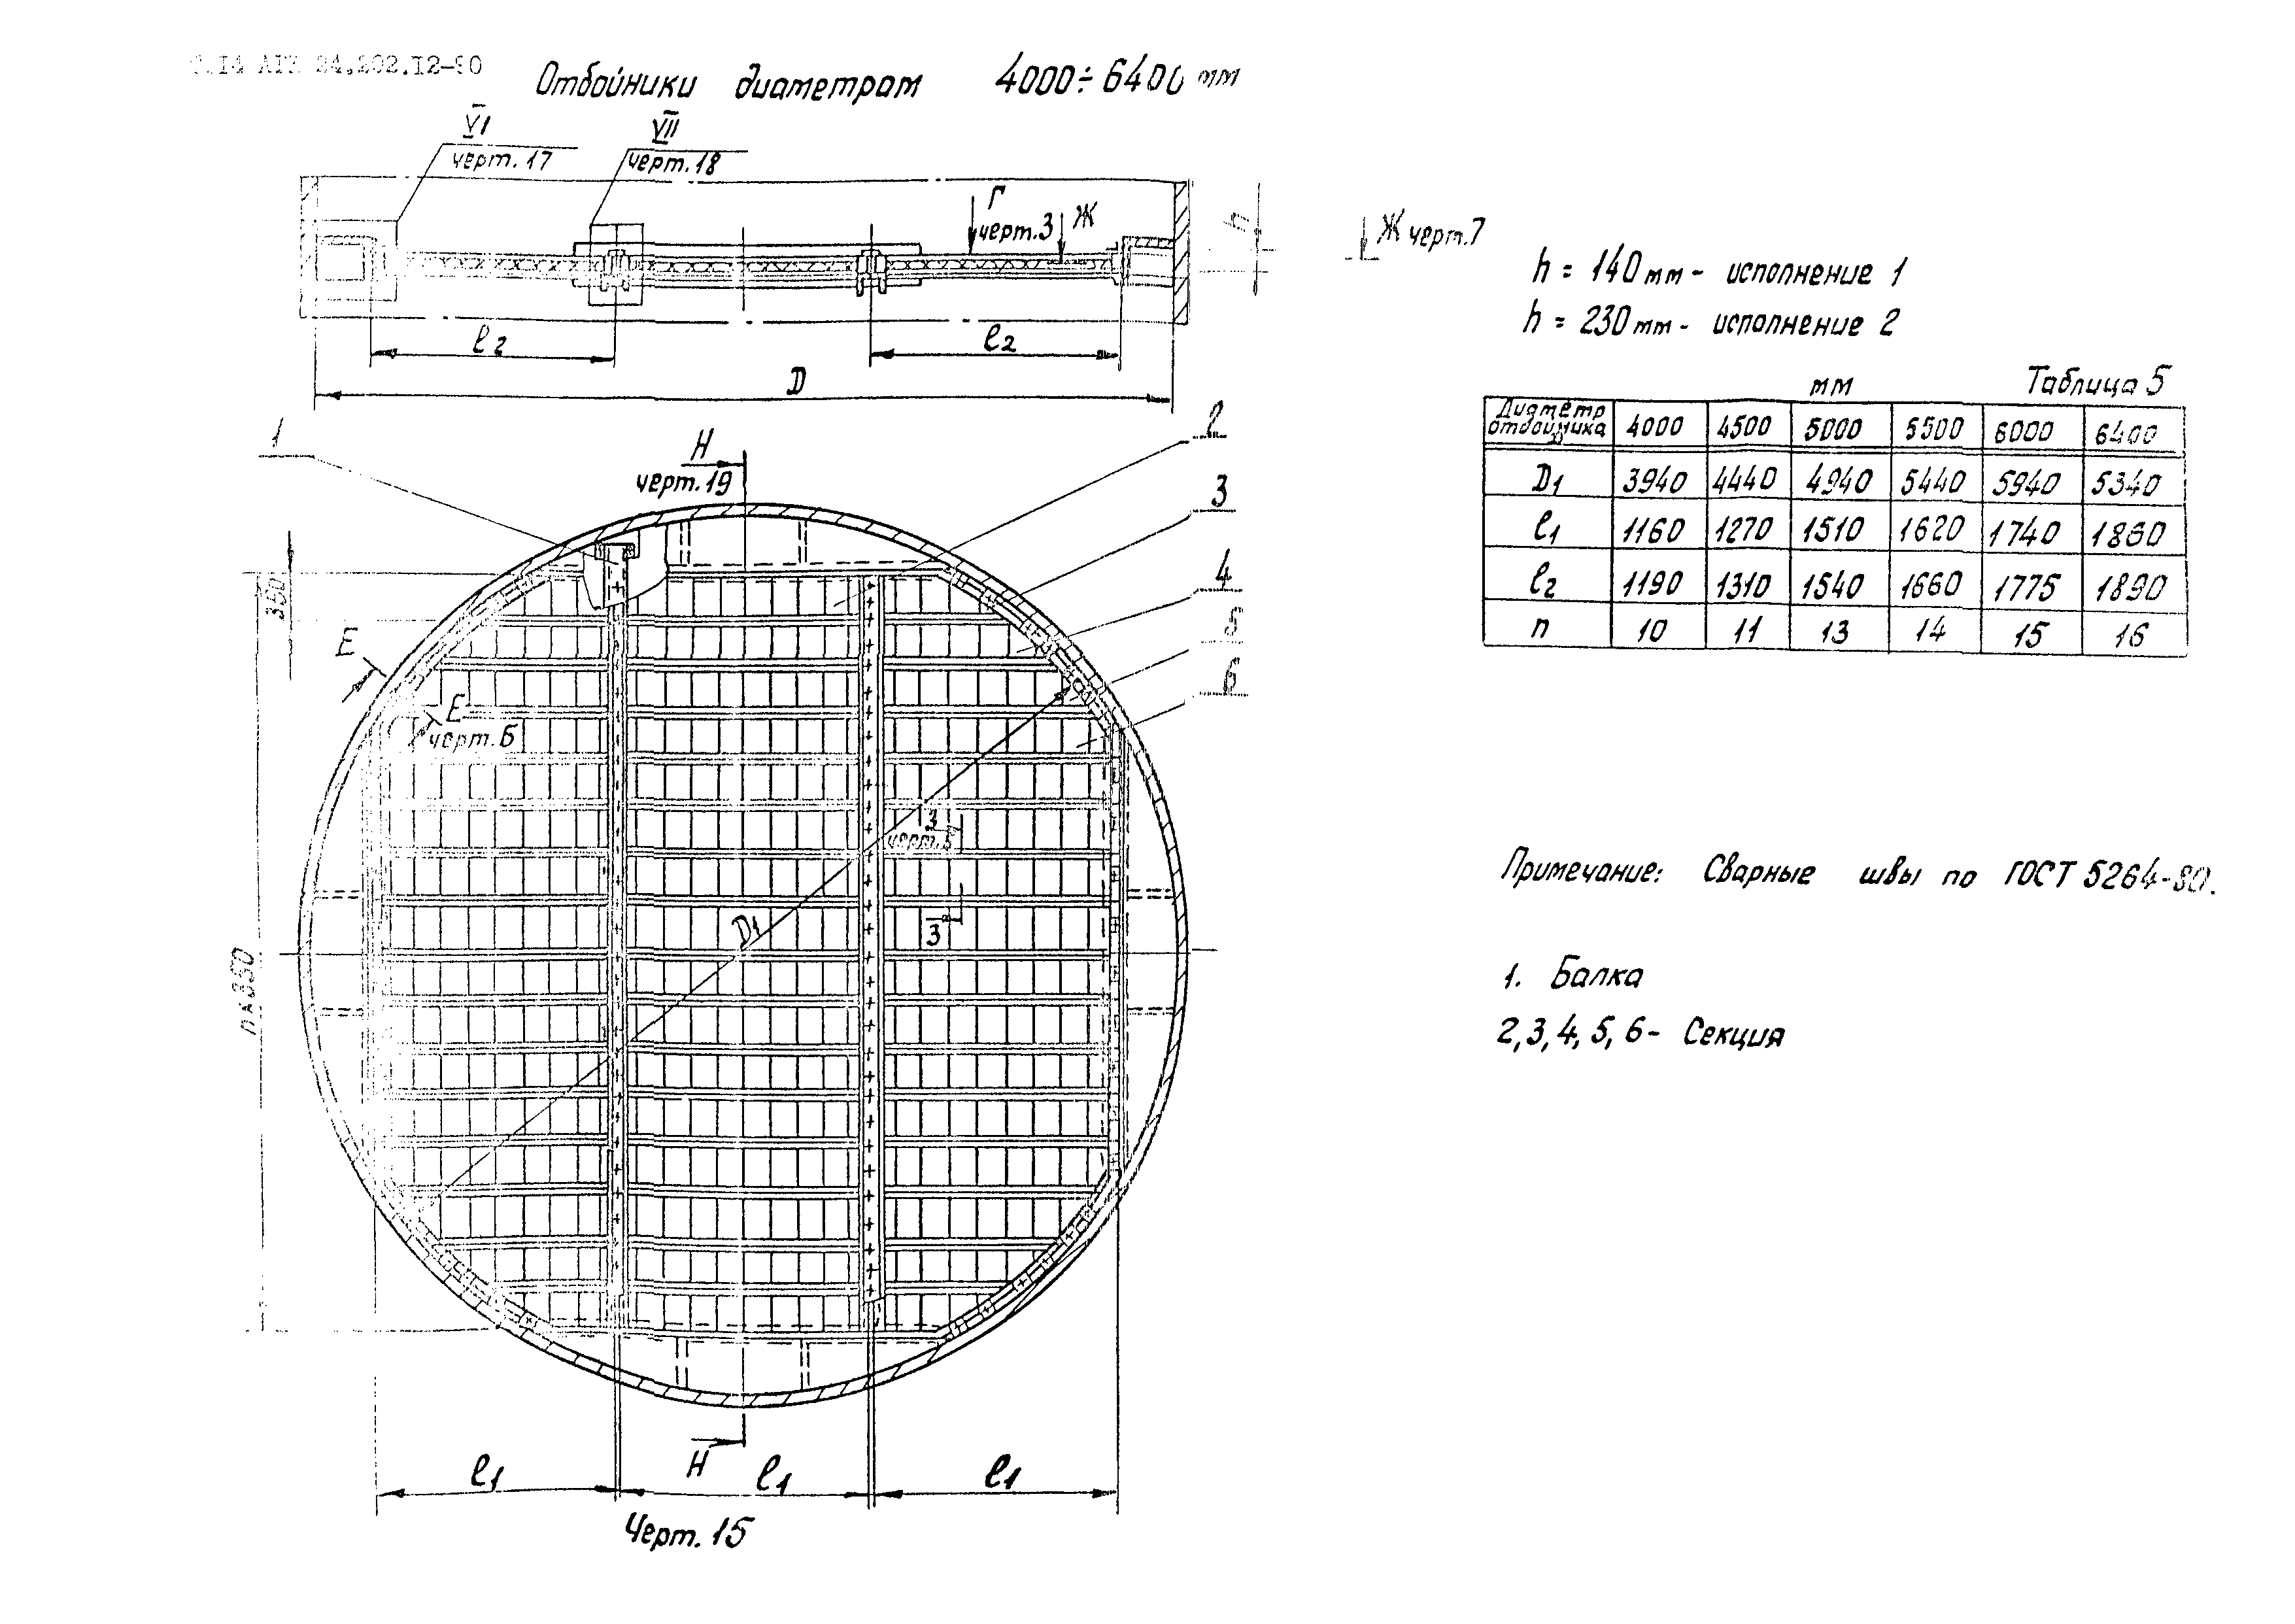 24.202.12-90
Отбойники диаметрам 4000÷6400 мм
VI
черт. 17
VII
черт. 18
Г
черт.3
Ж
h
Ж черт.7
l2
l2
D
h = 140 мм - исполнение 1
h = 230 мм - исполнение 2
мм
Таблица 5
Диаметр отбойника D | 4000 | 4500 | 5000 | 5500 | 6000 | 6400
D1 | 3940 | 4440 | 4940 | 5440 | 5940 | 5340
l1 | 1160 | 1270 | 1510 | 1620 | 1740 | 1860
l2 | 1190 | 1310 | 1540 | 1660 | 1775 | 1890
n | 10 | 11 | 13 | 14 | 15 | 16
1
2
Н
черт.19
3
4
5
6
350
Е
Е
черт. 6
З
черт.5
З
D1
n×350
Н
l1
l1
l1
Черт. 15
Примечание: Сварные швы по ГОСТ 5264-80.
1. Балка
2, 3, 4, 5, 6- Секция